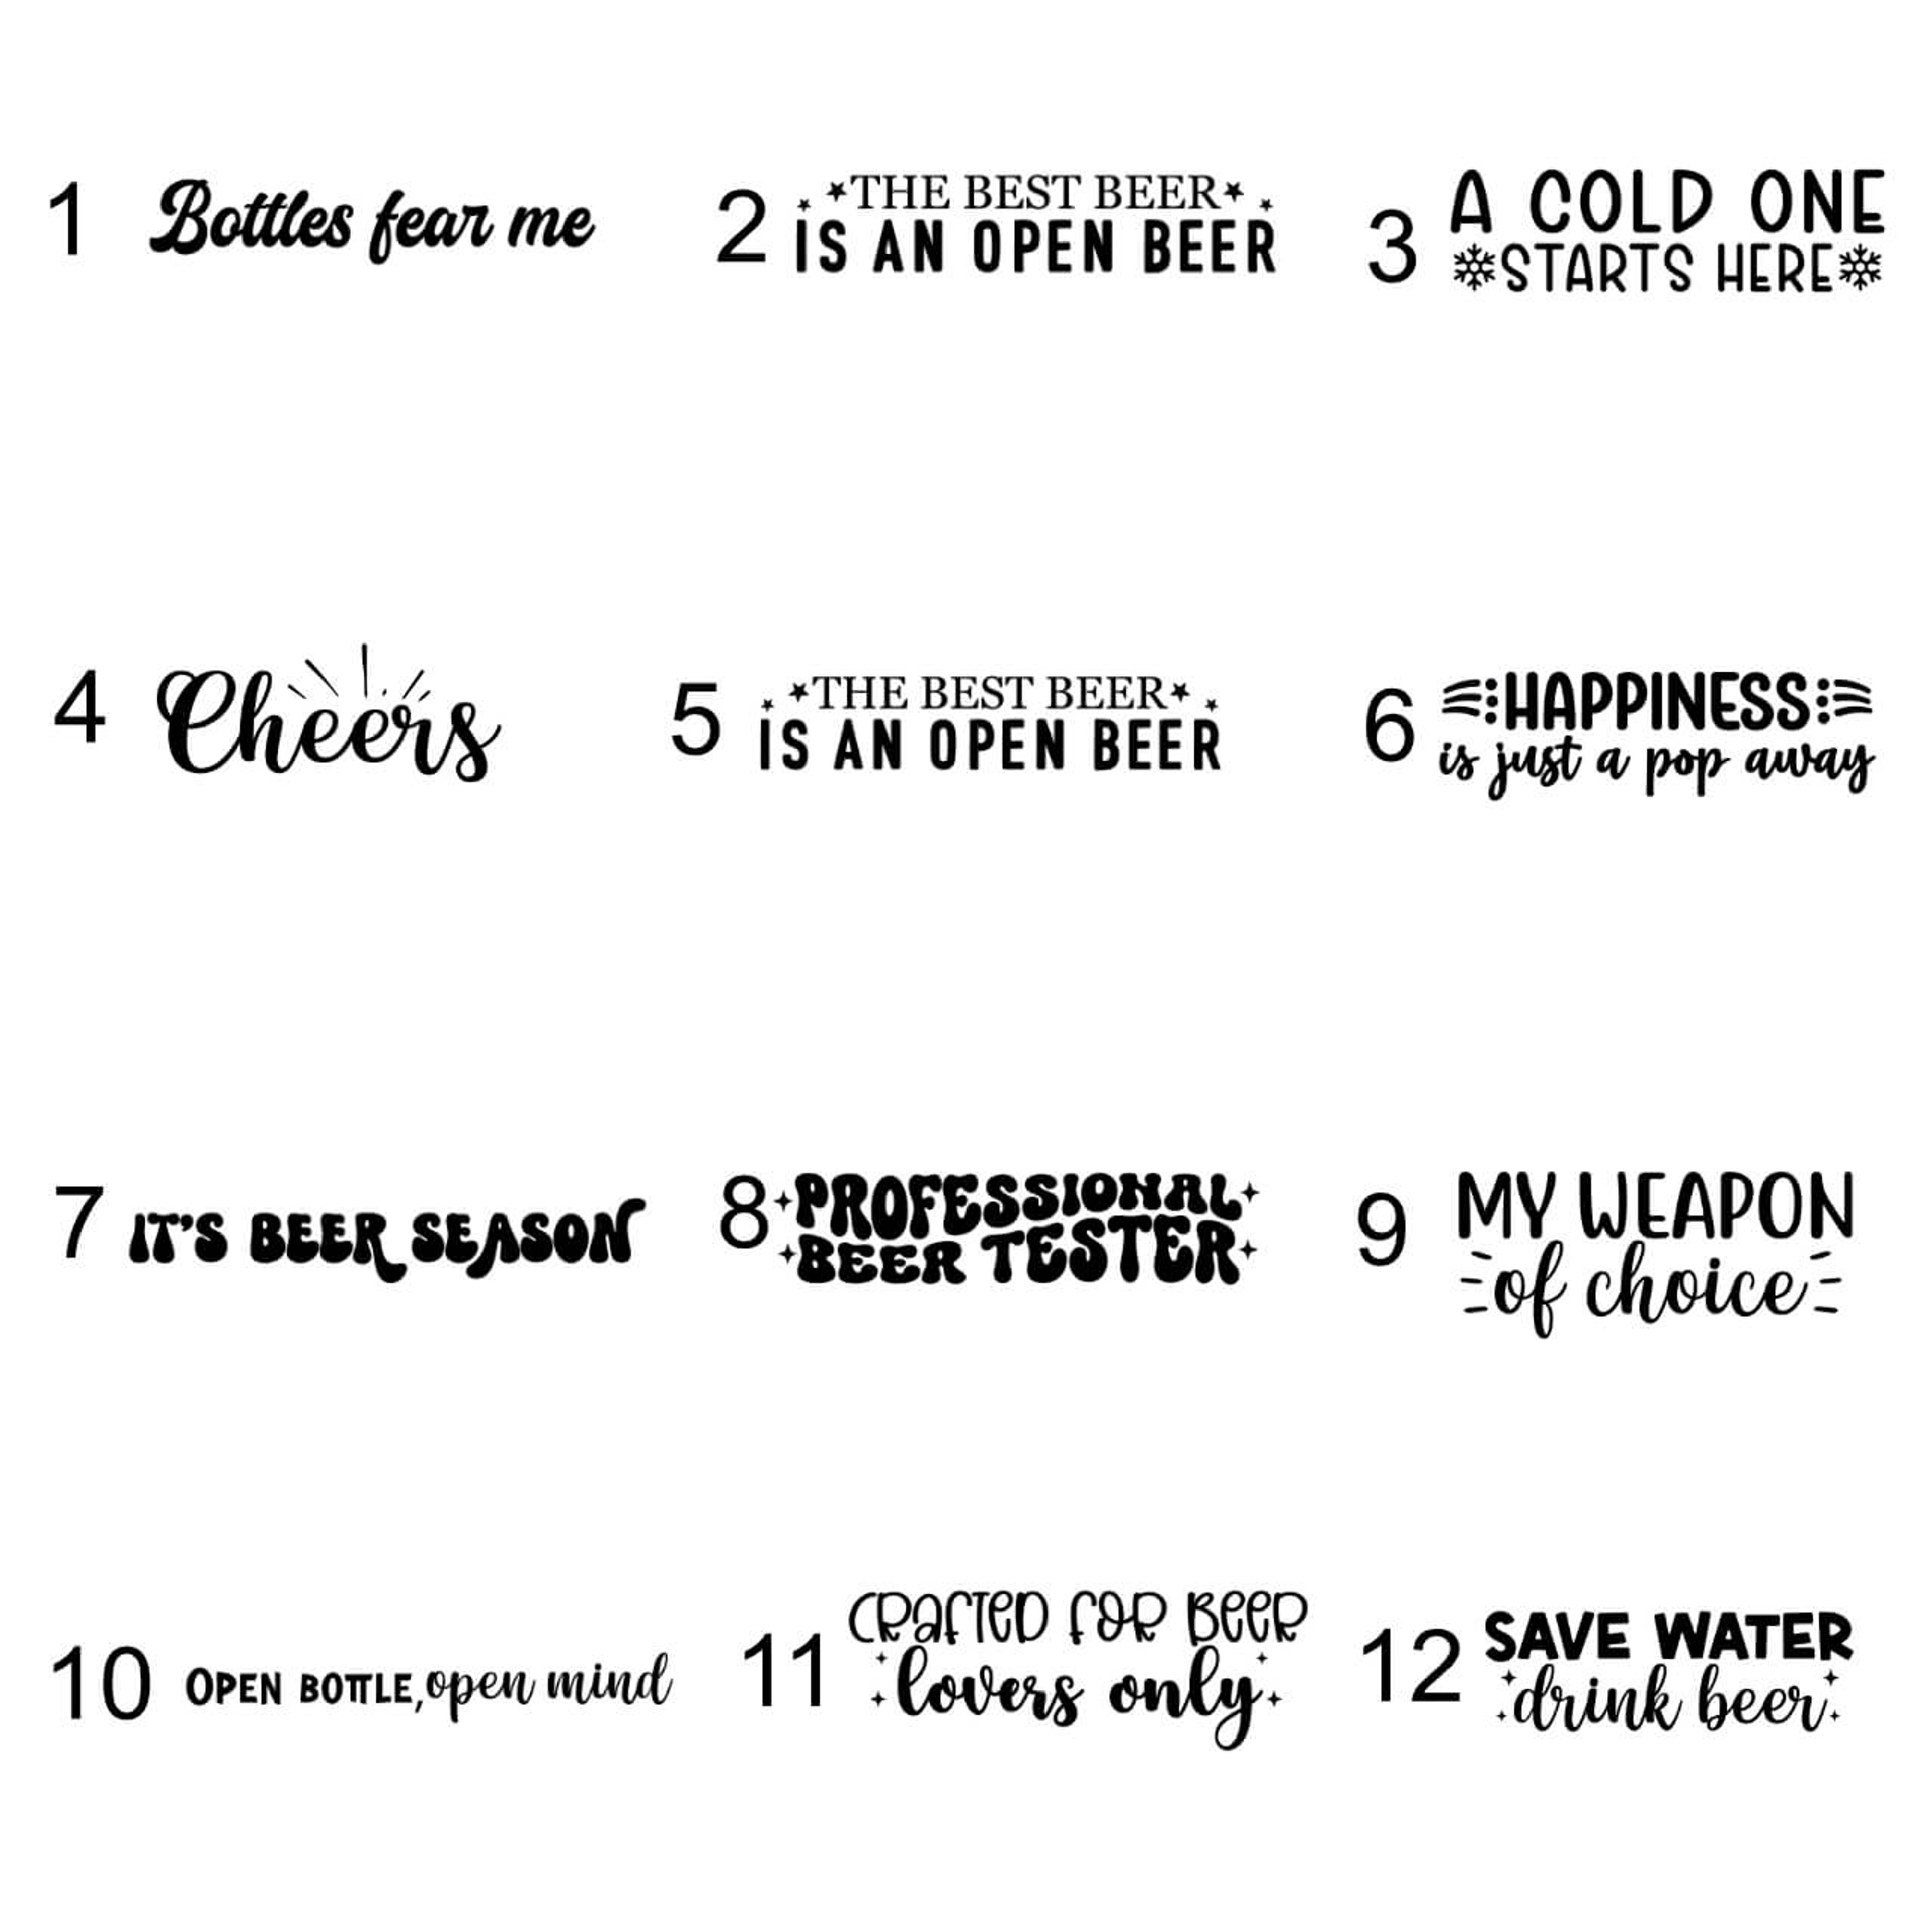 1 Bottles fear me
2 THE BEST BEER
IS AN OPEN BEER
3 A COLD ONE
STARTS HERE
4 Cheers
5 THE BEST BEER
IS AN OPEN BEER
6 HAPPINESS
is just a pop away
7 IT'S BEER SEASON
8 PROFESSIONAL
BEER TESTER
9 MY WEAPON
of choice
10 OPEN BOTTLE, open mind
11 CRAFTED FOR BEER
lovers only
12 SAVE WATER
drink beer